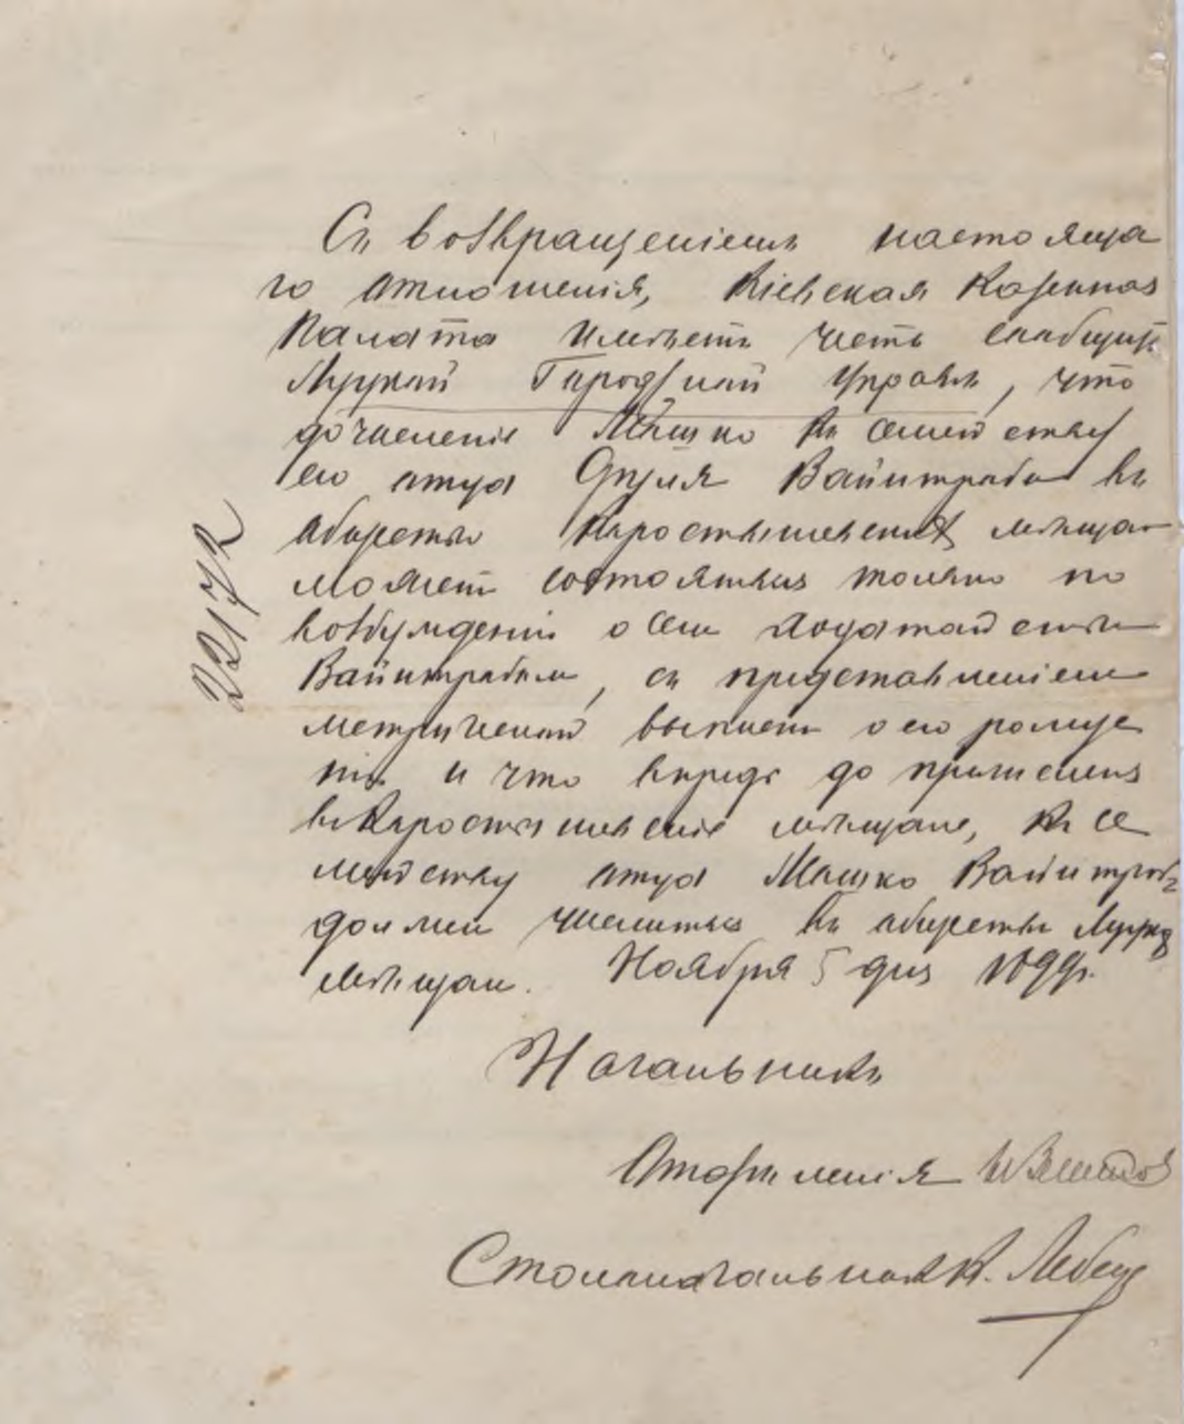 Съ возвращеніемъ настояща
го отношенія, Кіевская Казенная
Палата имѣетъ честь сообщить
Луцкой Городской Управѣ, что
дочисленіе Мошко къ семейству
его отца Вайнтрауба въ
обществѣ Коростышевскихъ мѣщан
можетъ состояться только по
возбужденіи о семъ ходатайства
Вайнтраубомъ, съ представленіемъ
метрической выписи о его рожде
ніи и что впредь до причисленія
въ Коростышевскіе мѣщане, къ се
мейству отца Мошко Вайнтрауб
долженъ числиться въ обществѣ Луцкихъ
мѣщан. Ноября 5 дня 1899г.
22172
Начальникъ
Отдѣленія
Столоначальникъ К. Лебеде